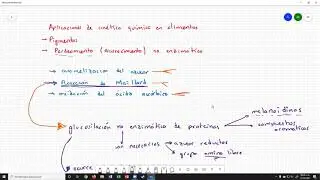 Aplicaciones de cinética química en alimentos
→ Pigmentos
→ Pardeamiento (oscurecimiento) no enzimático
→ caramelización del azúcar
→ Reacción de Maillard
→ oxidación del ácido ascórbico
melanoidinas
glucosilación no enzimática de proteínas
compuestos aromáticos
azúcar reductor
grupo amino libre
ocurre